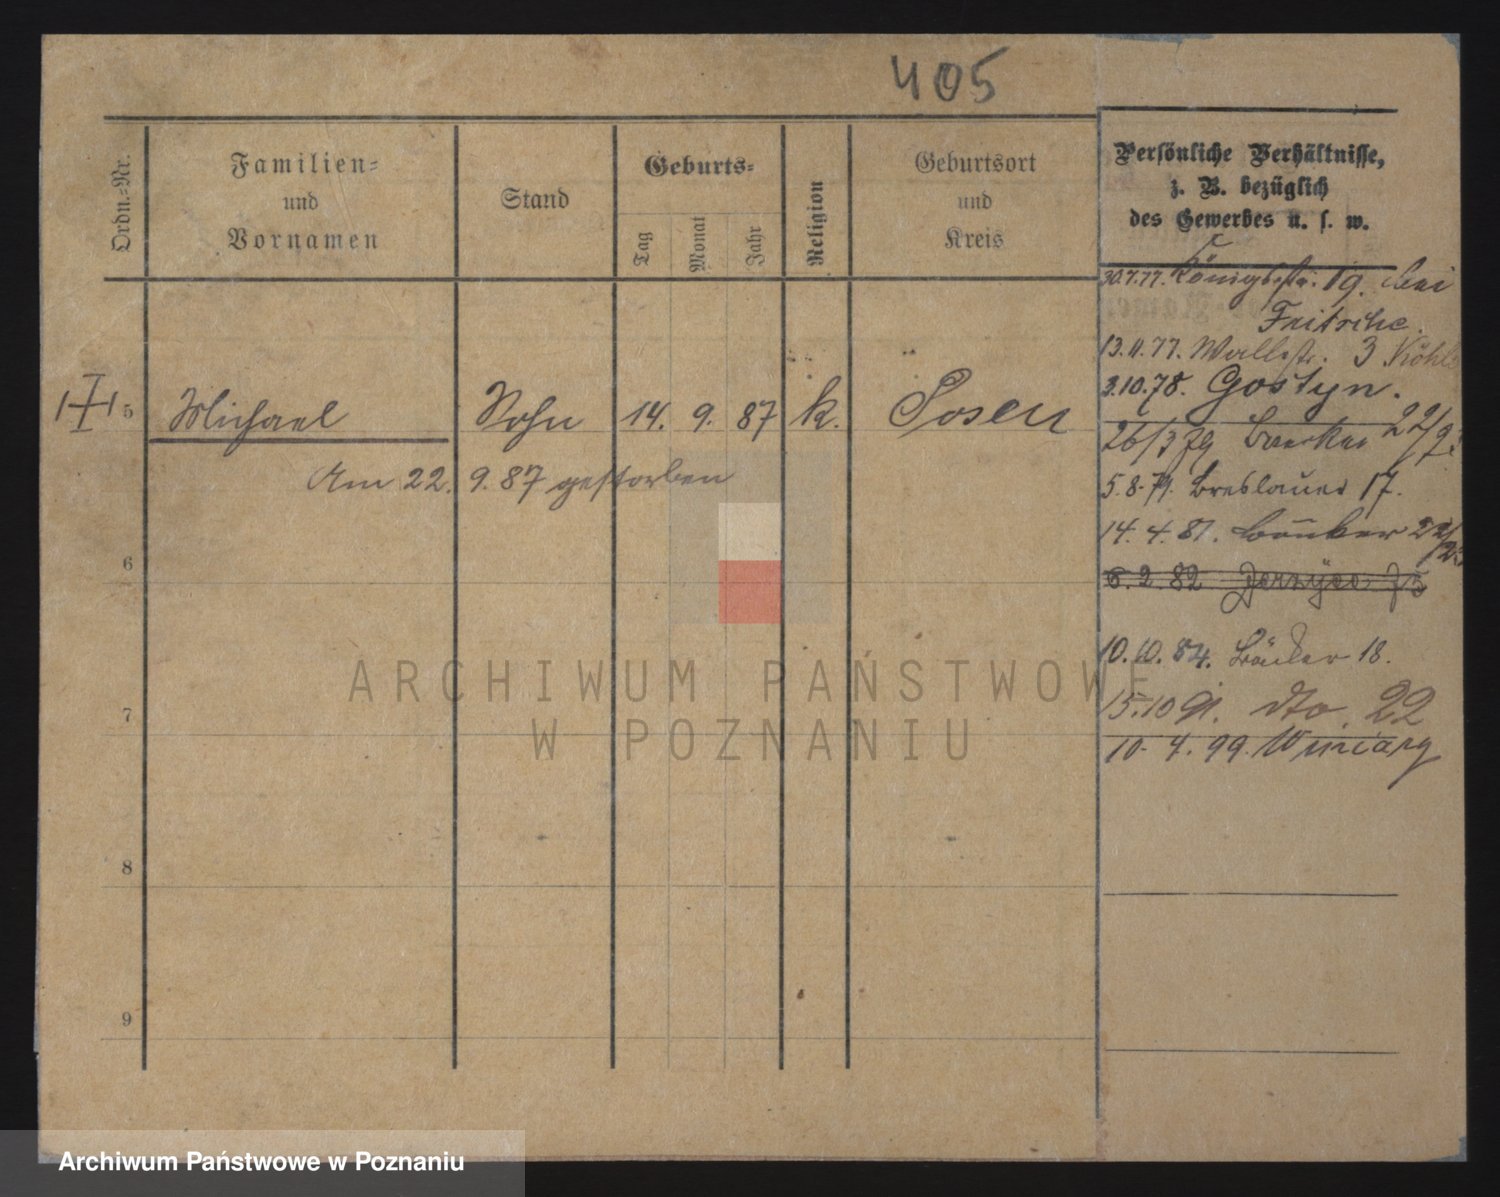 405
Ordn.-Nr.
Familien-
und
Vornamen
Stand
Geburts-
Tag
Monat
Jahr
Religion
Geburtsort
und
Kreis
Persönliche Verhältnisse,
z. B. bezüglich
des Gewerbes u. s. w.
30.7.77. Königsstr. 19. bei
Fritsche.
13.11.77. Wallstr. 3
3.10.78. Gostyn.
26/3 79 22/23
5.8.79. Breslauer 17.
14.4.81. Bäcker 22/23
6.2.82 Jerzyce 75
10.10.84. Bäcker 18.
15.10 91. dto. 22
10.4.99. Winiary
5 Michael Sohn 14. 9. 87 k. Posen
Am 22. 9. 87 gestorben
6
7
8
9
ARCHIWUM PAŃSTWOWE
W POZNANIU
Archiwum Państwowe w Poznaniu